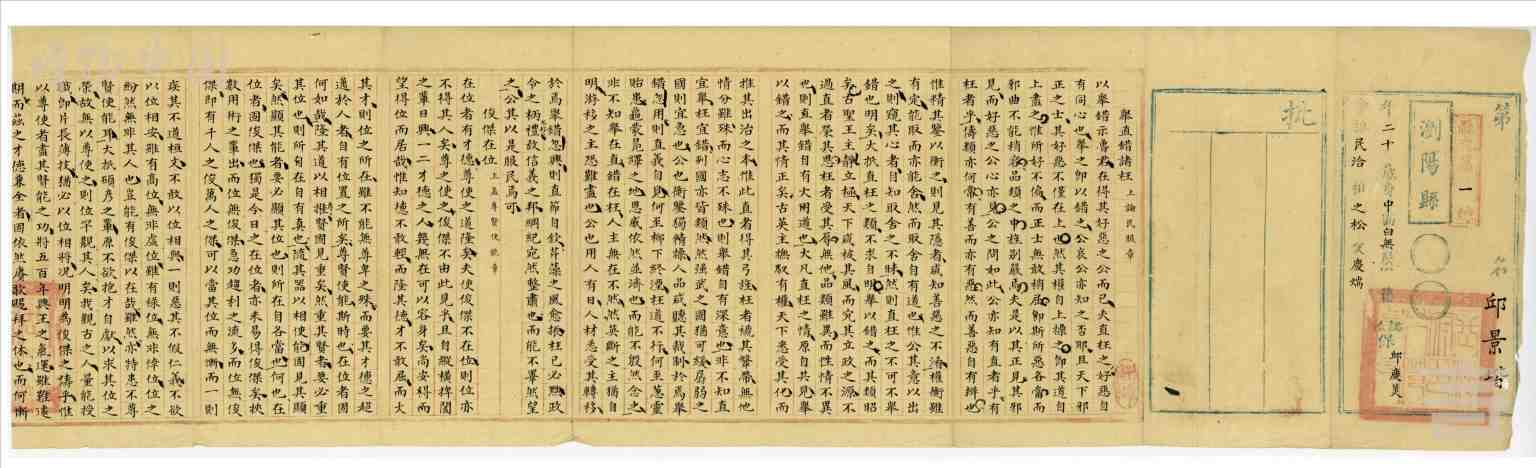 第
名
邱景
瀏陽縣
年二十 歲身中面白無鬚
民治 祖之松 父慶端
認保 邱慶
批
舉直錯諸枉 上論民服章
以舉錯示魯君在得其好惡之公而已夫直枉之好惡自
有同心也舉之即以錯之公哀公亦知之否耶且天下邪
正之士其好惡不僅在上也然其權自上操之即其道自
上盡之惟所好不偏而正士無敢稍屈即斯所惡各當而
邪曲不能稍容品類之中旌別嚴焉夫是以其正見其邪
見而好惡之公心亦見公之問如此公亦知有直者乎有
枉者乎儔類亦何常有善而亦有惡然而善惡自有辨也
惟精其鑒以衡之則見其隱者咸知善惡之不淆權衡雖
有定能取而亦能舍然而取舍自有道也惟公其意以出
之則窺其心者自知取舍之不昧然則直枉之不可不舉
錯也明矣大抵直枉之類不求自明舉以錯之而其類昭
矣古聖王主靜立極天下咸被其風而究其立政之源不
過直者榮其恩枉者受其辱無他品類雖異而性情不異
也則直舉枉錯自有大用道也大凡直枉之情原自共見舉
以錯之而其情正矣古英主撫馭有權天下悉受其化而
推其出治之本惟此直者得其弓旌枉者褫其鞶帶無他
情分雖殊而心志不殊也則舉錯自有深意也非不知直
宜舉枉宜錯列國亦皆類然然強武之國猶可緩孱弱之
國則宜急也公也衡鑒獨精操人品咸聽其裁制於焉舉
錯怎用則直義自見何至柳下終淹枉道不行何至惹靈
貽患龜蒙鳧繹之地恩威依然並濟也而能不毅然念之
非不知舉在直錯在枉人主無在不然然英斷之主猶自
明游移之主恐難盡也公也用人有日人材悉受其轉移
於焉舉錯怎興則直節自欽芹藻之風愈振枉已必黜政
令之柄禮教信義之邦綱紀宛然整肅也而能不睪然望
之公其以是服民焉可
俊傑在位 上孟尊賢使能章
在位者有才德尊使之道隆矣夫使俊傑不在位則位亦
不得其人矣尊之使之俊傑不由此見乎且自縱橫捭闔
之輩日興一二才德之人幾無在可以容身矣尚安得而
望得位而居哉惟知德不敢輕而隆其德才不敢屈而大
其才則位之所在雖不能無尊卑之殊而要其才德之超
邁於人者自有位置之所矣尊賢使能斯時也在位者固
何如哉隆其道以相推賢固見重矣然重其賢者要必重
其位也則所自在自有真也漬其器以相使能固見其顯
矣然顯其能者要必顯其位也則所在自各當也何也在
位者固俊傑也獨是今日之在位者亦未易得俊傑矣挾
數用術之輩出而位無俊傑急功趨利之流多而位無俊
傑即有千人之俊萬人之傑可以當其位而無慚而一則
疾其不道桓文不敢以位相與一則惡其不假仁義不欲
以位相安雖有高位無非虛位雖有祿位無非倖位位之
紛然無非其人也豈能有俊傑以在哉雖然亦特患不尊
賢使能耳大抵碩彥之輩原不欲抱才自獻以求其位之
榮故無以尊使之則位罕覯其人矣我觀古之人量能授
職即片長薄技猶必以位相將况明明為俊傑之儔乎惟
以尊使者盡其賢能之功將五百年興王之氣運雖難遽
期而茲之才德兼全者固依然賡歌颺拜之休也而何慚